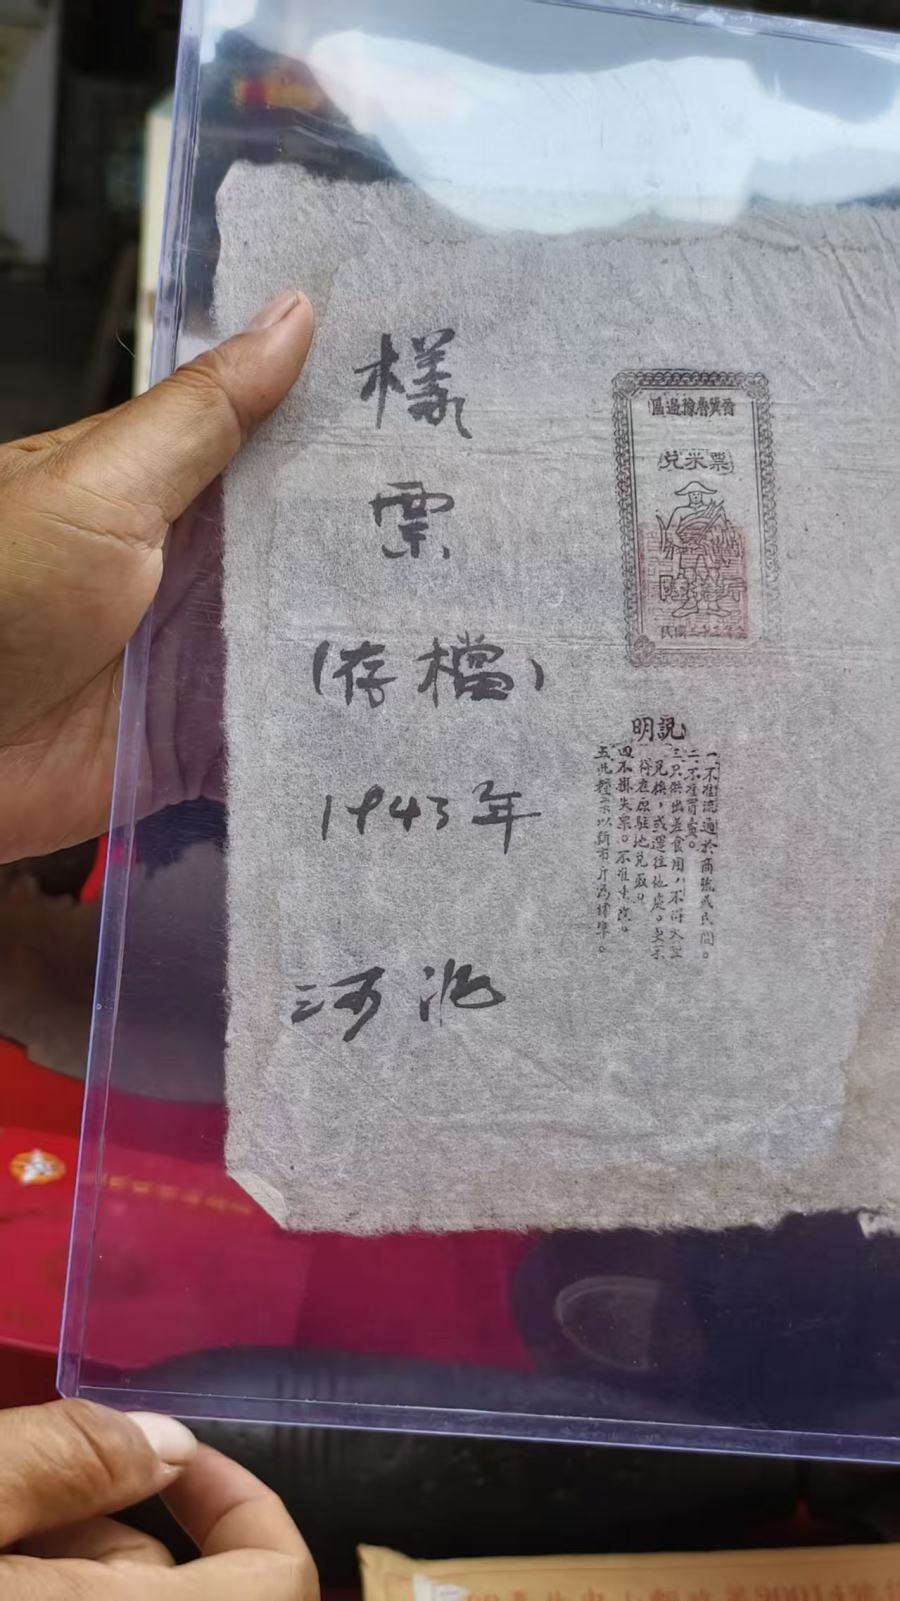 樣
票
(存檔)
1943年
河北
晉冀魯豫邊區
兌米票
陸拾斤
說明
一、不准流通於商號或民間。
二、不准買賣。
三、只供出差食用，不得大宗
兌換，或運往他處。更不
得在原駐地兌取。
四、不掛失票。不准塗改。
五、此種票以新市斤為標準。